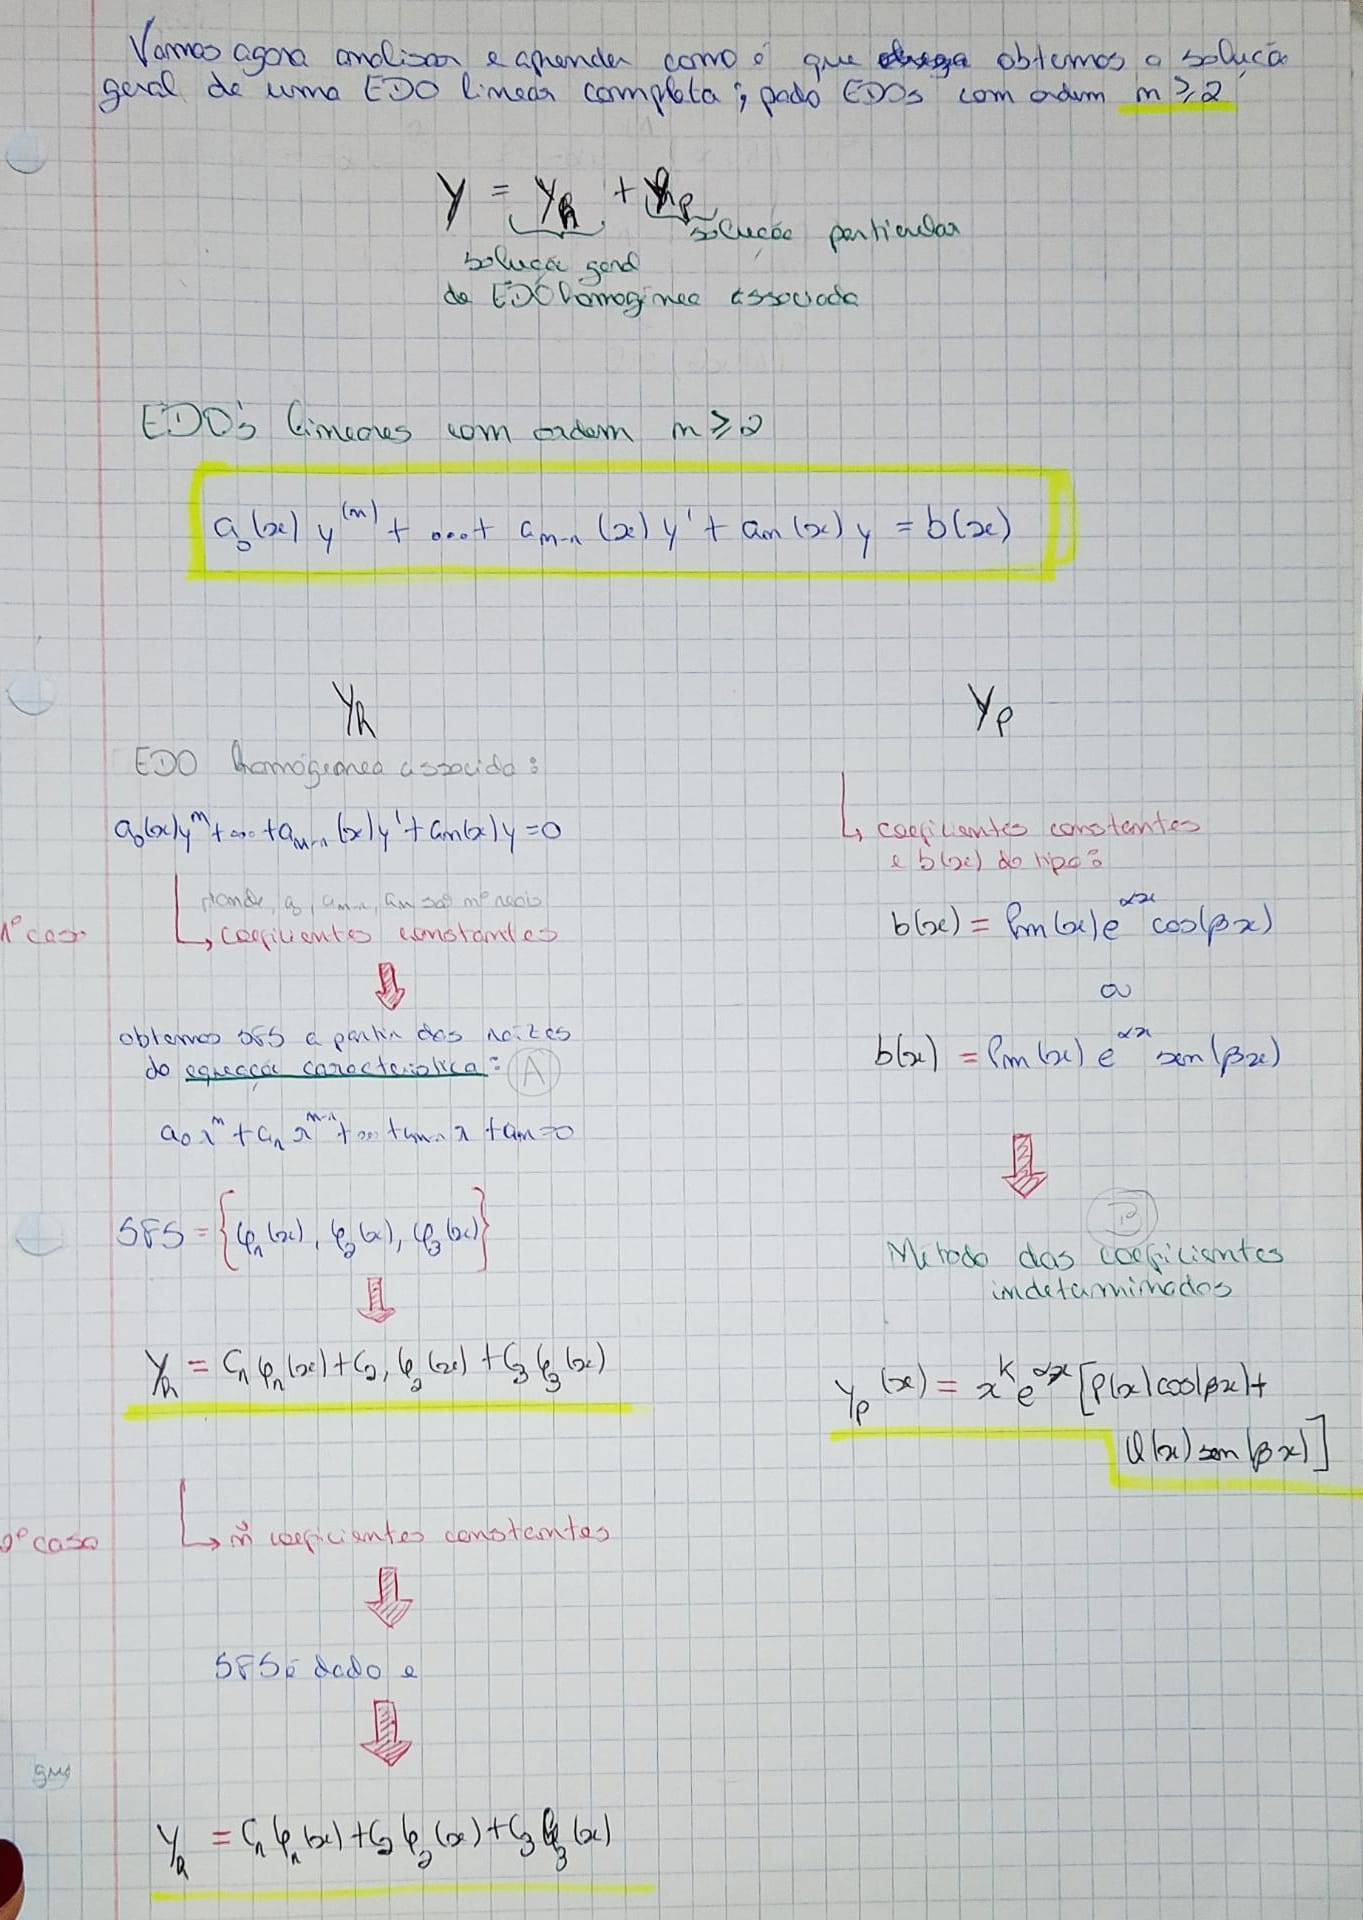 Vamos agora analisar e aprender como é que obtemos a solução
geral de uma EDO linear completa; EDOs com ordem n ≥ 2
y = yh + yp
solução particular
solução geral
da EDO homogénea associada
EDO's lineares com ordem n ≥ 2
a₀(x) y⁽ⁿ⁾ + ... + aₙ₋₁(x) y' + aₙ(x) y = b(x)
yh
EDO homogénea associada:
a₀(x)yⁿ + ... + aₙ₋₁(x)y' + aₙ(x)y = 0
aₙ₋₁, aₙ são nº reais
1º caso
↳ coeficientes constantes
obtemos SFS a partir das raízes
da equação característica: (A)
a₀ λⁿ + a₁ λⁿ⁻¹ + ... + aₙ₋₁ λ + aₙ = 0
SFS = {φ₁(x), φ₂(x), φ₃(x)}
yh = C₁φ₁(x) + C₂, φ₂(x) + C₃φ₃(x)
2º caso
↳ ñ coeficientes constantes
SFS é dado e
yh = C₁φ₁(x) + C₂φ₂(x) + C₃φ₃(x)
yp
↳ coeficientes constantes
e b(x) do tipo:
b(x) = Pm(x) e^αx cos(βx)
ou
b(x) = Pm(x) e^αx sen(βx)
(B)
Método das coeficientes
indeterminados
yp(x) = x^k e^αx [P(x)cos(βx) +
Q(x) sen(βx)]